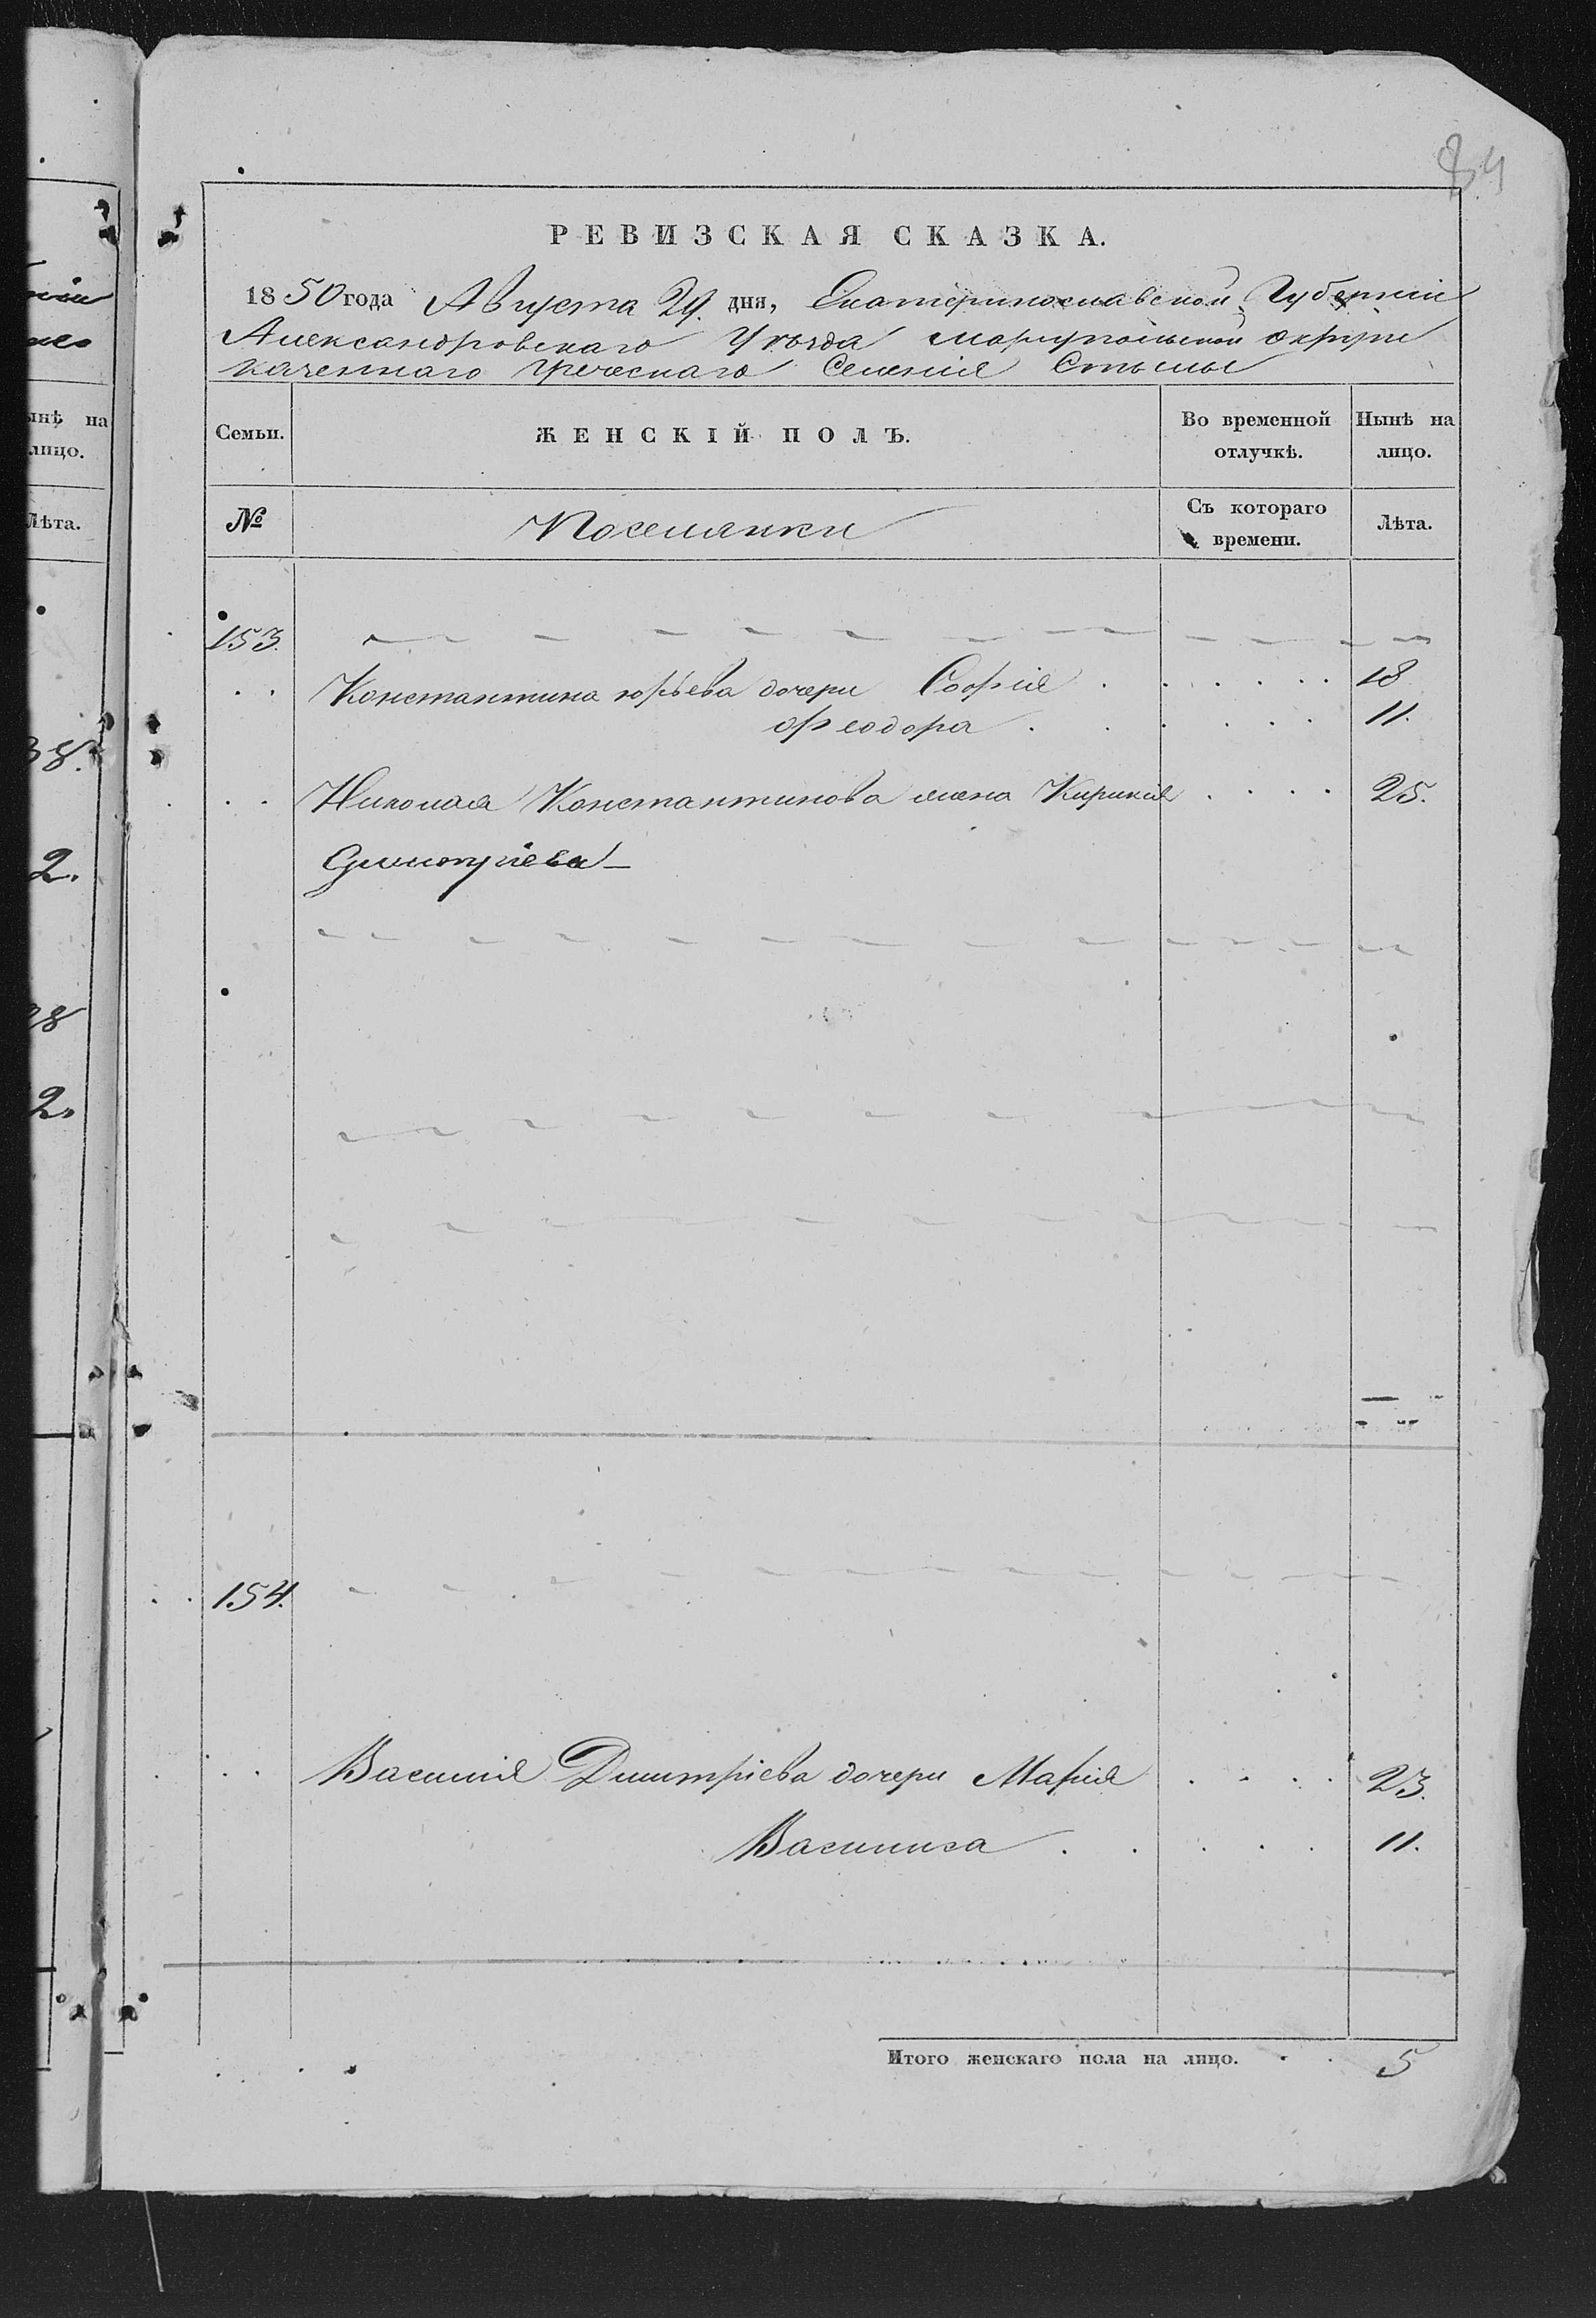 84
РЕВИЗСКАЯ СКАЗКА.
1850 года Августа 29. дня, Екатеринославской Губерніи
Александровскаго Уѣзда Мариупольской округи
казеннаго Греческаго Селенія Стылы
Семьи. ЖЕНСКІЙ ПОЛЪ. Во временной отлучкѣ. Нынѣ на лицо.
№ Поселянки Съ котораго времени. Лѣта.
153.
Константина юрьева дочери Софія 18
Феодора 11.
Николая Константинова жена Кирикія 25.
Димитріева
154.
Василія Димитріева дочери Марія 23.
Василиса 11.
Итого женскаго пола на лицо. 5